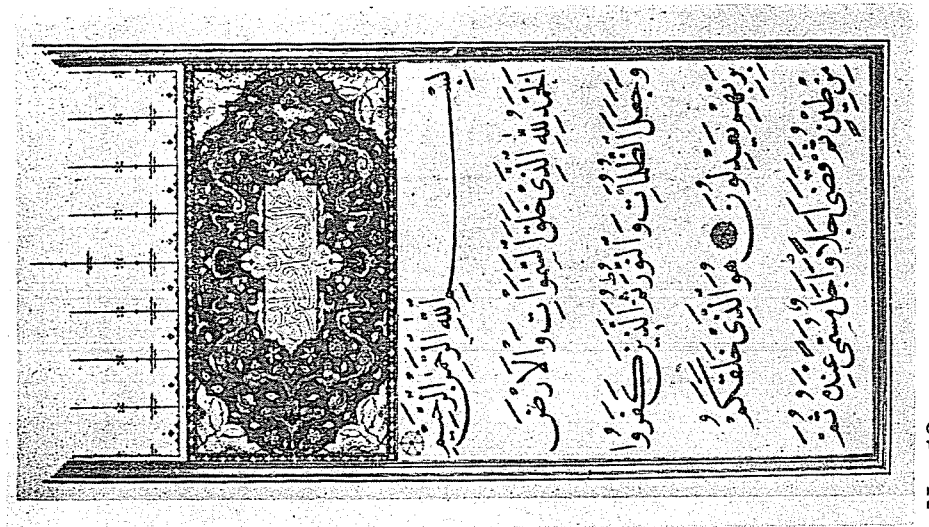 بِسْمِ اللّٰهِ الرَّحْمٰنِ الرَّحِيمِ
اَلْحَمْدُ لِلّٰهِ الَّذِى خَلَقَ السَّمٰوَاتِ وَالْاَرْضَ
وَجَعَلَ الظُّلُمَاتِ وَالنُّورَ ثُمَّ الَّذِينَ كَفَرُوا
بِرَبِّهِمْ يَعْدِلُونَ هُوَ الَّذِى خَلَقَكُمْ
مِنْ طِينٍ ثُمَّ قَضٰى اَجَلًا وَاَجَلٌ مُسَمًّى عِنْدَهُ ثُمَّ